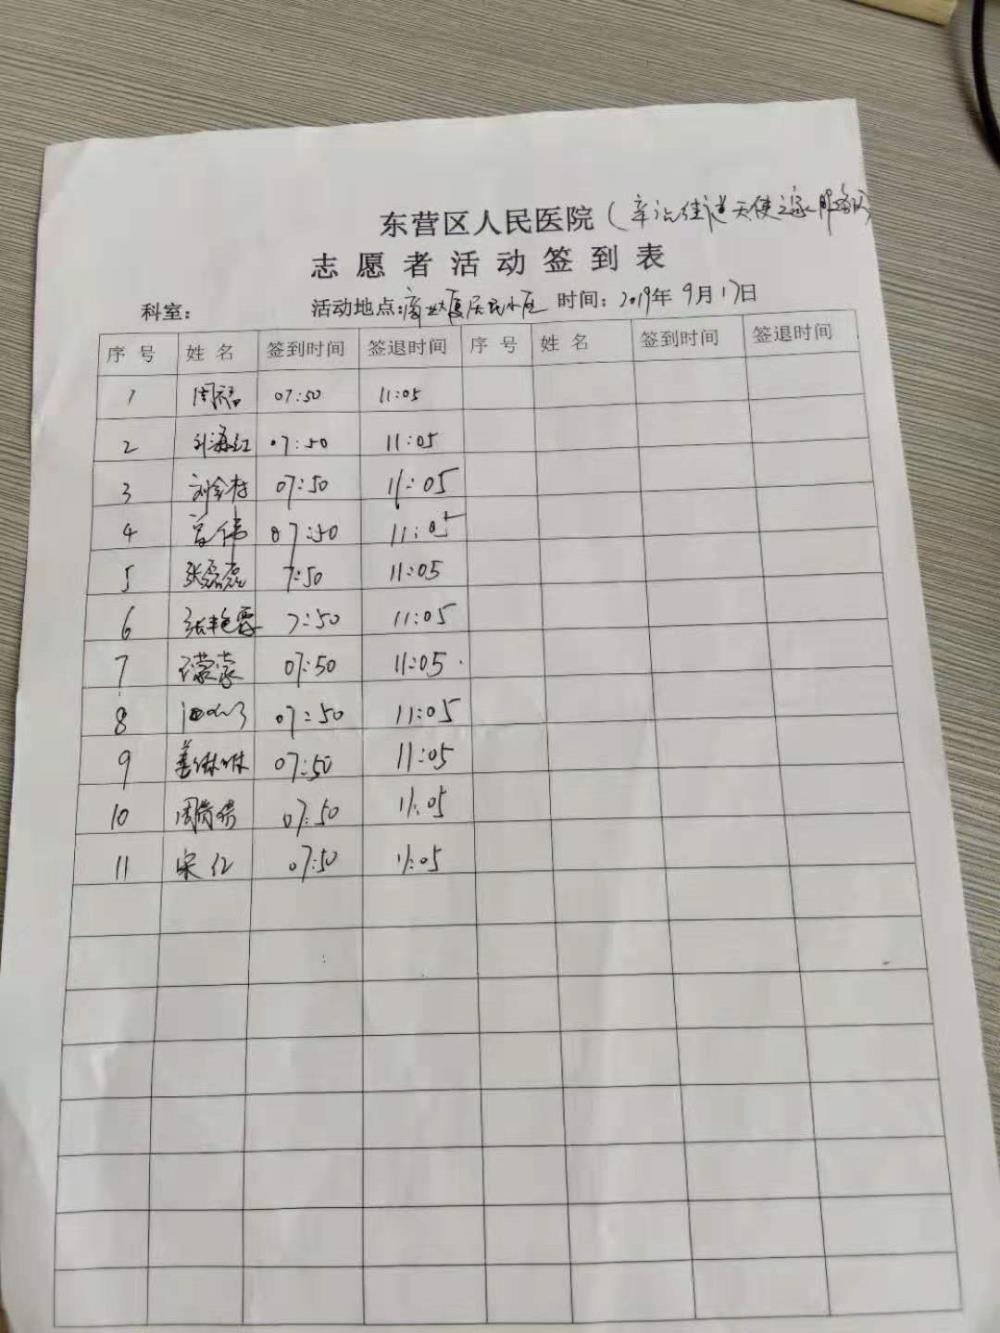 东营区人民医院(辛店街道天使之家服务队)
志愿者活动签到表
科室: 活动地点:商业大厦居民小区 时间:2019年9月17日
序号 姓名 签到时间 签退时间 序号 姓名 签到时间 签退时间
1 07:50 11:05
2 刘海红 07:50 11:05
3 07:50 11:05
4 07:50 11:05
5 张磊磊 7:50 11:05
6 张艳霞 7:50 11:05
7 07:50 11:05
8 07:50 11:05
9 姜琳琳 07:50 11:05
10 07:50 11:05
11 宋红 07:50 11:05